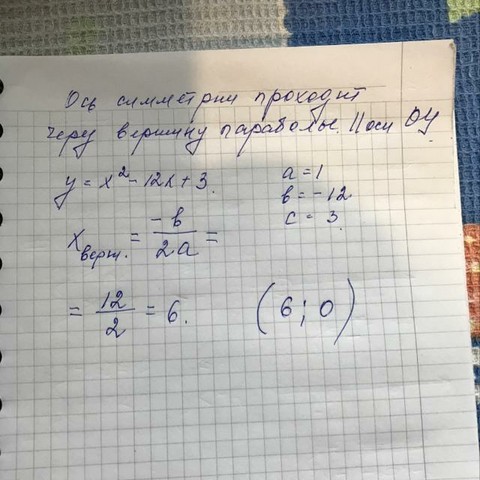 Ось симметрии проходит
через вершину параболы. || оси ОУ
y = x² - 12x + 3.
a = 1
в = -12
c = 3
x верш. = -в / 2a =
= 12 / 2 = 6.
(6 ; 0)